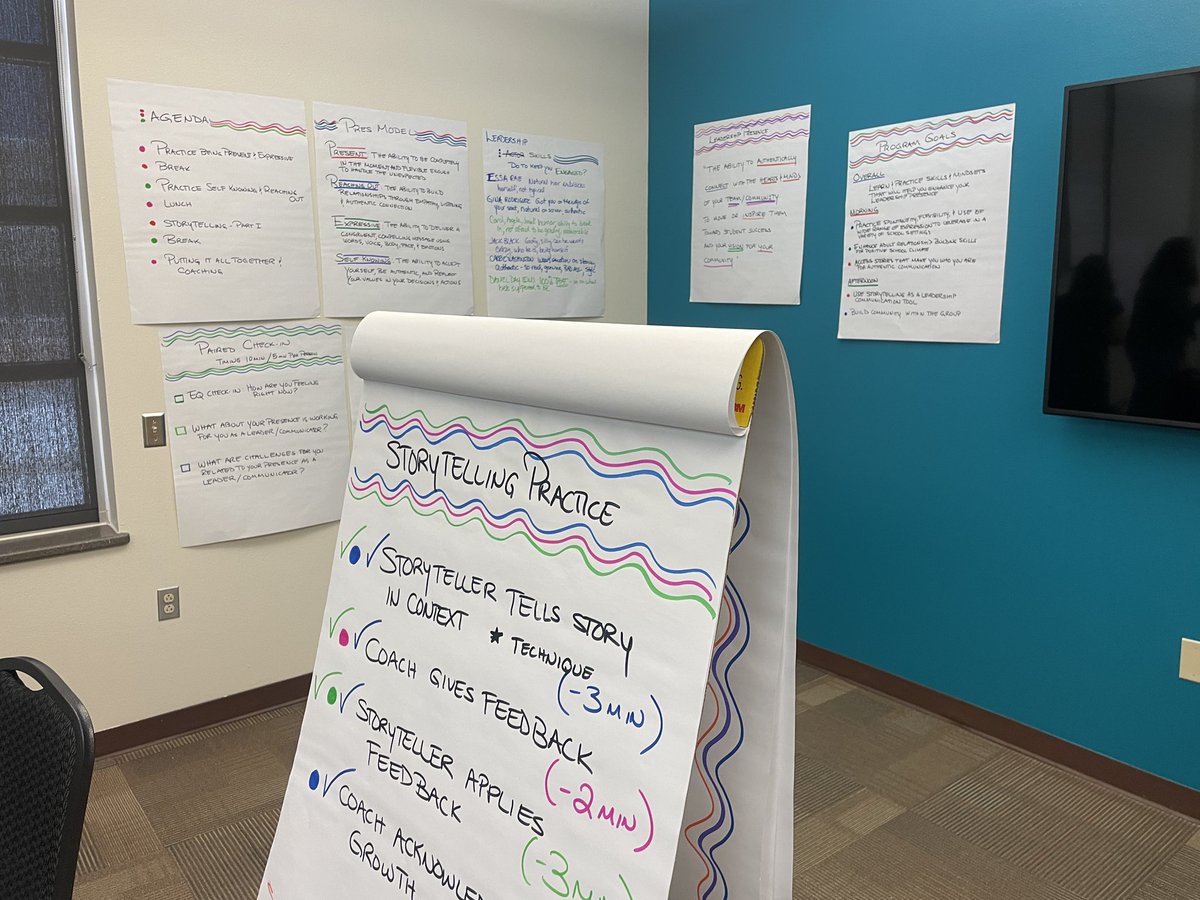 AGENDA
PRACTICE BEING PRESENT & EXPRESSIVE
BREAK
PRACTICE SELF KNOWING & REACHING
OUT
LUNCH
STORYTELLING - PART I
BREAK
PUTTING IT ALL TOGETHER &
COACHING
PRES MODEL
PRESENT: THE ABILITY TO BE COMPLETELY
IN THE MOMENT AND FLEXIBLE ENOUGH
TO HANDLE THE UNEXPECTED
REACHING OUT: THE ABILITY TO BUILD
RELATIONSHIPS THROUGH EMPATHY, LISTENING
& AUTHENTIC CONNECTION
EXPRESSIVE: THE ABILITY TO DELIVER A
CONGRUENT COMPELLING MESSAGE USING
WORDS, VOICE, BODY, FACE, & EMOTIONS
SELF KNOWING: THE ABILITY TO ACCEPT
YOURSELF, BE AUTHENTIC, AND REFLECT
YOUR VALUES IN YOUR DECISIONS & ACTIONS
LEADERSHIP
ACTOR SKILLS
DO TO KEEP YOU
ENGAGED?
ESSA RAE Natural
herself, not typical
seat, natural authentic
LEADERSHIP PRESENCE
"THE ABILITY TO AUTHENTICALLY
CONNECT WITH THE HEARTS & MINDS
OF YOUR TEAM/COMMUNITY
TO MOVE OR INSPIRE THEM
TOWARD STUDENT SUCCESS
AND YOUR VISION FOR YOUR
COMMUNITY"
PROGRAM GOALS
OVERALL
LEARN & PRACTICE SKILLS & MINDSETS
THAT WILL HELP YOU ENHANCE YOUR
LEADERSHIP PRESENCE
MORNING
PRACTICE SPONTANEITY, FLEXIBILITY, & USE OF
WIDER RANGE OF EXPRESSION TO LEVERAGE IN A
VARIETY OF SCHOOL SETTINGS
ENHANCE ADULT RELATIONSHIP BUILDING SKILLS
FOR POSITIVE SCHOOL CLIMATE
ACCESS STORIES THAT MAKE YOU WHO YOU ARE
FOR AUTHENTIC COMMUNICATION
AFTERNOON
USE STORYTELLING AS A LEADERSHIP
COMMUNICATION TOOL
BUILD COMMUNITY WITHIN THE GROUP
PAIRED CHECK-IN
TIMING 10 MIN / 5 MIN PER PERSON
EQ CHECK-IN: HOW ARE YOU FEELING
RIGHT NOW?
WHAT ABOUT YOUR PRESENCE IS WORKING
FOR YOU AS A LEADER/COMMUNICATOR?
WHAT ARE CHALLENGES FOR YOU
RELATED TO YOUR PRESENCE AS A
LEADER/COMMUNICATOR?
STORYTELLING PRACTICE
STORYTELLER TELLS STORY
IN CONTEXT * TECHNIQUE
(-3 MIN)
COACH GIVES FEEDBACK
(-2 MIN)
STORYTELLER APPLIES
FEEDBACK
(-3 MIN)
COACH ACKNOWLE
GROWTH